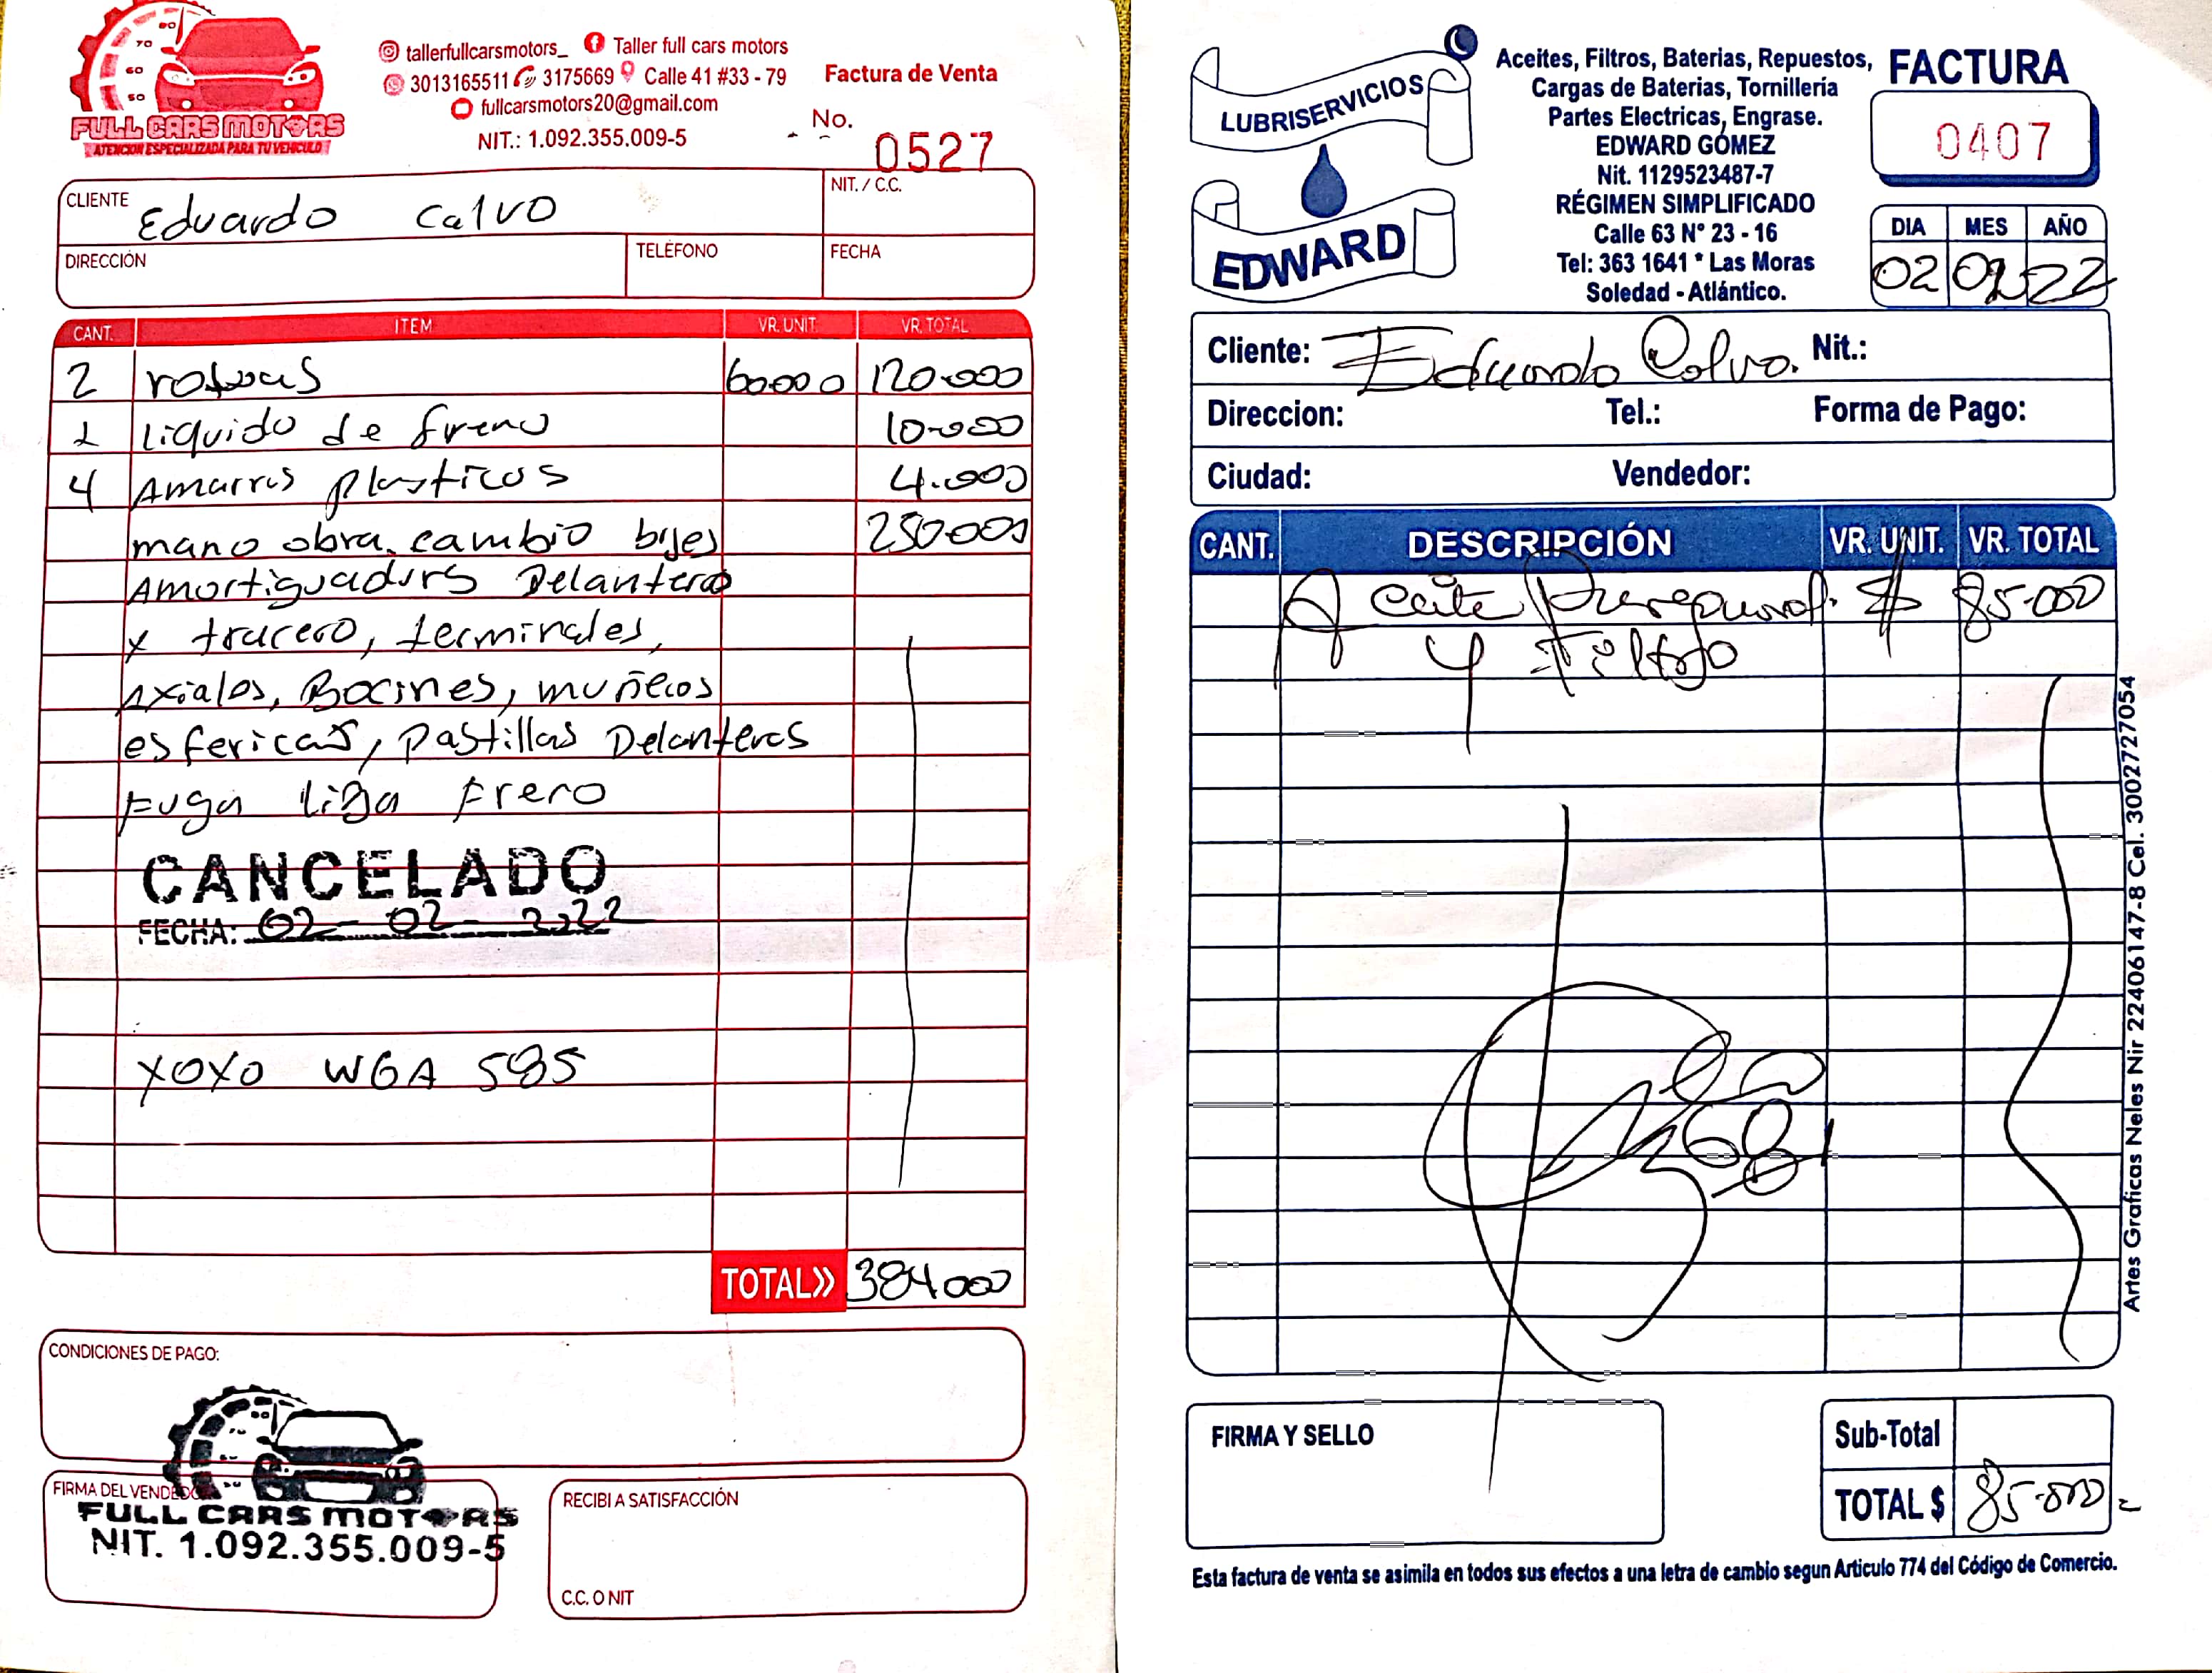 80
70
60
50
FULL CARS MOTORS
ATENCION ESPECIALIZADA PARA TU VEHICULO
tallerfullcarsmotors_ Taller full cars motors
3013165511 3175669 Calle 41 #33 - 79
fullcarsmotors20@gmail.com
NIT.: 1.092.355.009-5
Factura de Venta
No.
0527
CLIENTE Eduardo Calvo
NIT. / C.C.
DIRECCIÓN TELÉFONO FECHA
CANT. ITEM VR. UNIT VR. TOTAL
2 60.000 120.000
1 Liquido de freno 10.000
4 Amarres plasticos 4.000
mano obra. cambio bujes 250.000
Amortiguadors Delanteros
y tracero, terminales,
Axiales, Bocines, muñecos
esfericas, Pastillas Delanteras
Fuga liga Freno
CANCELADO
FECHA: 02-02-2022
XOXO WGA 585
TOTAL» 384.000
CONDICIONES DE PAGO:
FIRMA DEL VENDEDOR
FULL CARS MOTORS
NIT. 1.092.355.009-5
RECIBI A SATISFACCIÓN
C.C. O NIT
LUBRISERVICIOS
EDWARD
Aceites, Filtros, Baterias, Repuestos,
Cargas de Baterias, Tornillería
Partes Electricas, Engrase.
EDWARD GÓMEZ
Nit. 1129523487-7
RÉGIMEN SIMPLIFICADO
Calle 63 N° 23 - 16
Tel: 363 1641 * Las Moras
Soledad - Atlántico.
FACTURA
0407
DIA MES AÑO
02 02 22
Cliente: Eduardo Calvo. Nit.:
Direccion: Tel.: Forma de Pago:
Ciudad: Vendedor:
CANT. DESCRIPCIÓN VR. UNIT. VR. TOTAL
Aceite $ 85.000
y Filtro
Sub-Total
TOTAL $ 85.000=
FIRMA Y SELLO
Esta factura de venta se asimila en todos sus efectos a una letra de cambio segun Articulo 774 del Código de Comercio.
Artes Graficas Neles Nir 22406147-8 Cel. 3002727054